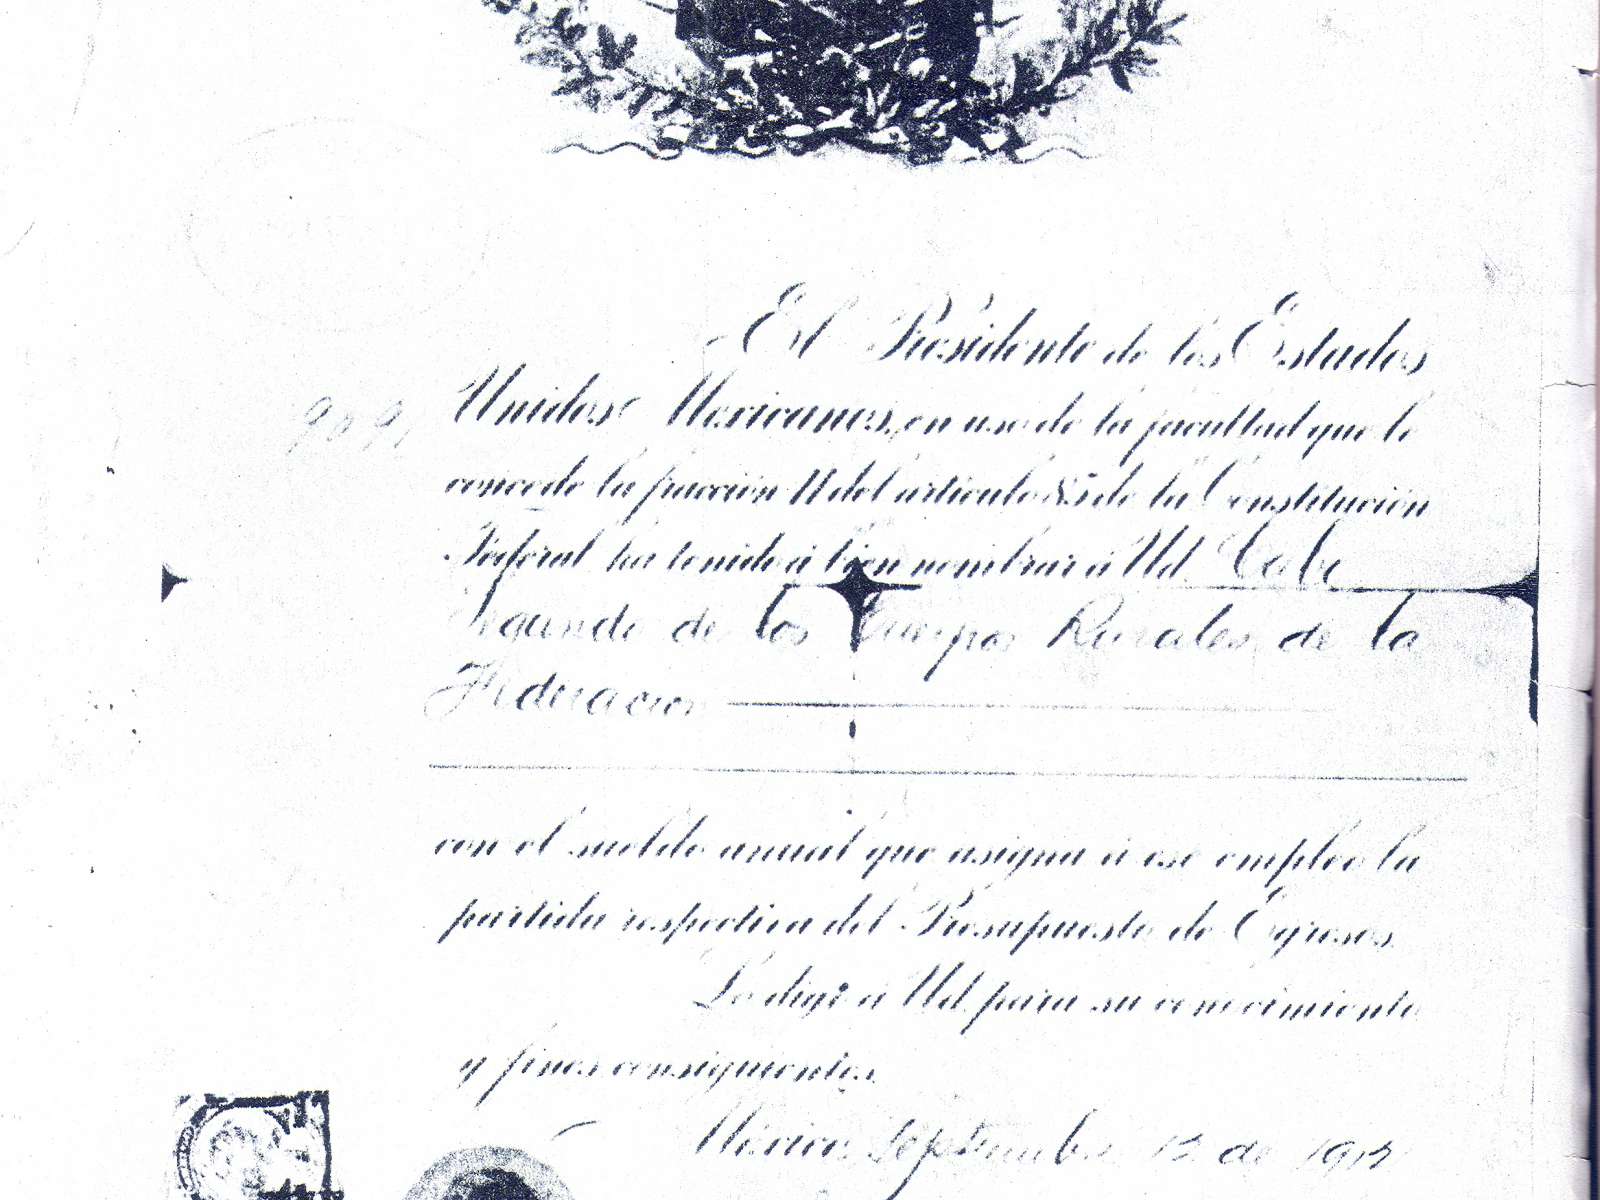 El Presidente de los Estados
Unidos Mexicanos, en uso de la facultad que le
909
concede la fracción II del artículo 85 de la Constitución
Federal ha tenido á bien nombrar á Ud. Cabo
Segundo de los Cuerpos Rurales de la
Federacion
con el sueldo anual que asigna á ese empleo la
partida respectiva del Presupuesto de Egresos.
Lo digo á Ud. para su conocimiento
y fines consiguientes.
México, Septiembre de